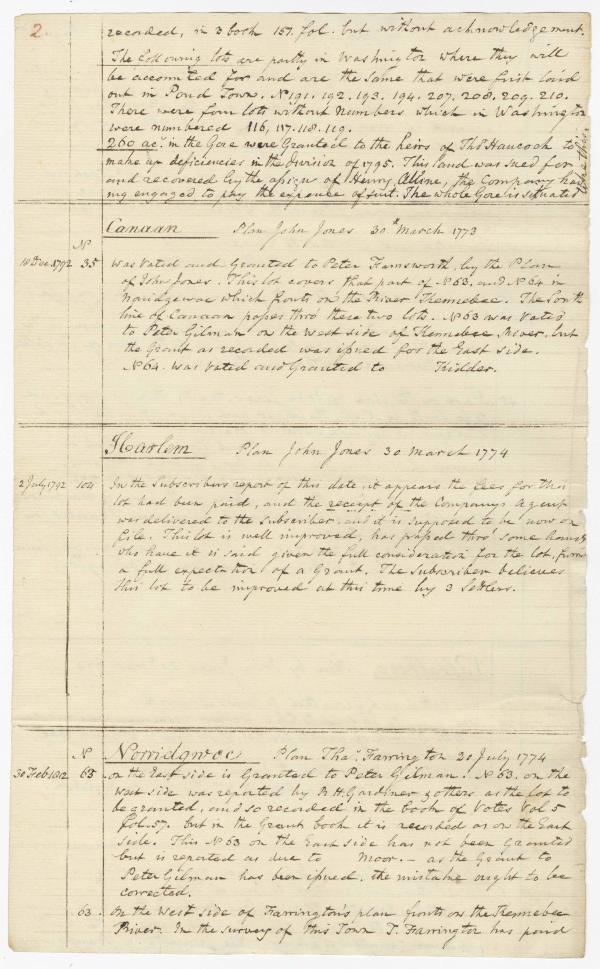 2.
recorded, in 3 book 157. fol. but without acknowledgement.
The following lots are partly in Washington where they will
be accounted for and are the same that were first laid
out in Pond Town. No 191. 192. 193. 194. 207. 208. 209. 210.
There were four lots without Numbers which in Washington
were numbered 116, 117. 118. 119.
260 acs. in the Gore were Granted to the heirs of Thos Hancock to
make up deficiencies in the division of 1795. This land was sued for
and recovered by the assigns of Henry Alline, the Company hav
ing engaged to pay the expense of suit. The whole Gore is situated
Canaan Plan John Jones 30th March 1773
No
18 Dec. 1792 35 was Voted and Granted to Peter Farnsworth, by the Plan
of John Jones. This lot covers that part of No 63. and No 64 in
Norridgewoc which fronts on the River Kennebec. The South
line of Canaan passes thro these two lots. No 63 was Voted
to Peter Gilman on the West side of Kennebec River. but
the Grant as recorded was issued for the East side.
No 64. was Voted and Granted to Kidder.
Harlem Plan John Jones 30 March 1774
2 July 1792 104 In the Subscribers report of this date, it appears the fees for this
lot had been paid, and the receipt of the Companys Agent
was delivered to the Subscriber, and it is supposed to be now on
file. This lot is well improved, has passed thro' some hands
who have it is said given the full consideration for the lot, from
a full expectation of a Grant. The Subscriber believes
this lot to be improved at this time by 3 Settlers.
No Norridgwoc Plan Thas. Farrington 20 July 1774
30 Feb 1812 63 on the East side is Granted to Peter Gilman. No 63. on the
West side was reported by R H. Gardiner & others as the lot to
be granted, and so recorded in the book of Votes Vol 5
fol. 57. but in the Grant book it is recorded as on the East
Side. This No 63 on the East side has not been Granted
but is reported as due to Moor. – as the Grant to
Peter Gilman has been issued, the mistake ought to be
corrected.
63. on the West side of Farrington's plan fronts on the Kennebec
River. In the survey of this Town T. Farrington has paid